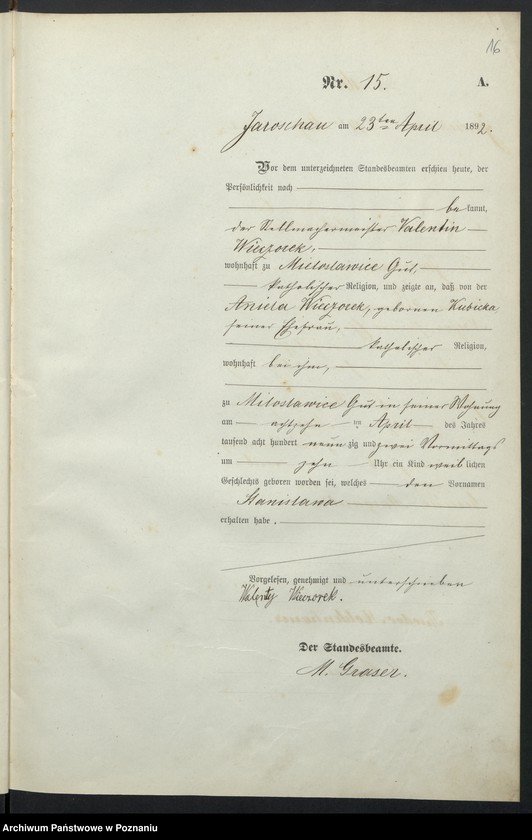 16
Nr. 15. A.
Jaroschau am 23ten April 1892.
Vor dem unterzeichneten Standesbeamten erschien heute, der
Persönlichkeit nach
bekannt,
der Stellmachermeister Valentin
Wieczorek,
wohnhaft zu Miloslawice Gut,
katholischer Religion, und zeigte an, daß von der
Aniela Wieczorek, geborenen Kubicka,
seiner Ehefrau,
katholischer Religion,
wohnhaft bei ihm,
zu Miloslawice Gut in seiner Wohnung
am achtzehnten April des Jahres
tausend acht hundert neunzig und zwei Vormittags
um zehn Uhr ein Kind weiblichen
Geschlechts geboren worden sei, welches den Vornamen
Stanislawa
erhalten habe.
Vorgelesen, genehmigt und unterschrieben
Walenty Wieczorek.
Der Standesbeamte.
M. Graser.
Archiwum Państwowe w Poznaniu